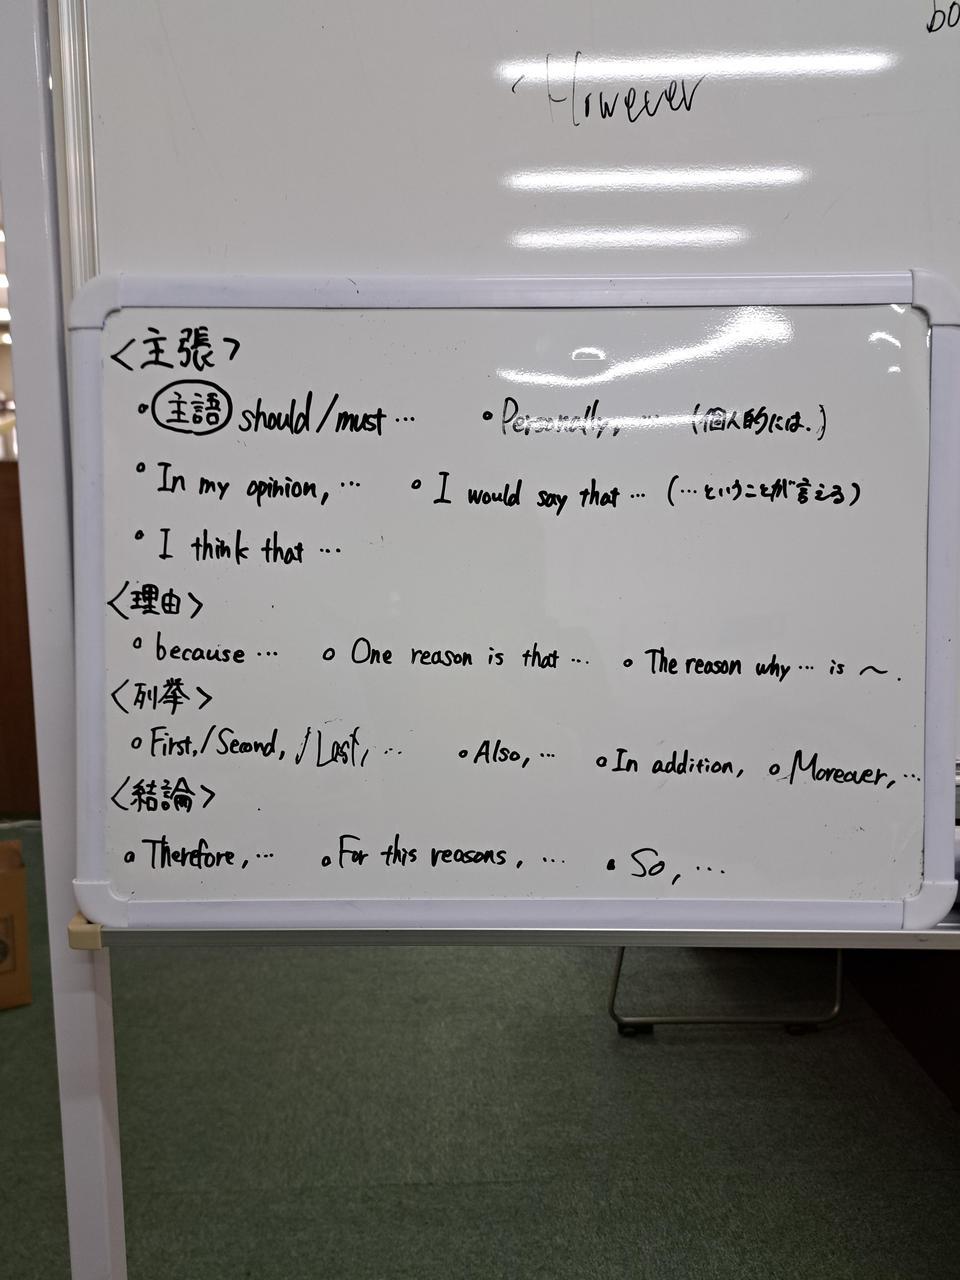 bo
However
〈主張〉
• 主語 should/must … • Personally, … (個人的には.)
• In my opinion, … • I would say that … (…ということが言える)
• I think that …
〈理由〉
• because … • One reason is that … • The reason why … is ～.
〈列挙〉
• First,/Second, /Last, … • Also, … • In addition, • Moreover, …
〈結論〉
• Therefore, … • For this reasons, … • So, …